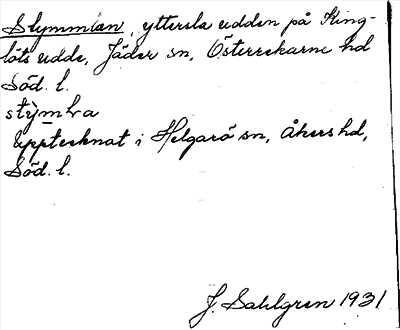 Stymmian, yttersta udden på King-
löts udde, Jäder sn, Österrekarne hd
Söd. l.
Upptecknat i Helgarö sn, Åkers hd,
Söd. l.
J. Sahlgren 1931